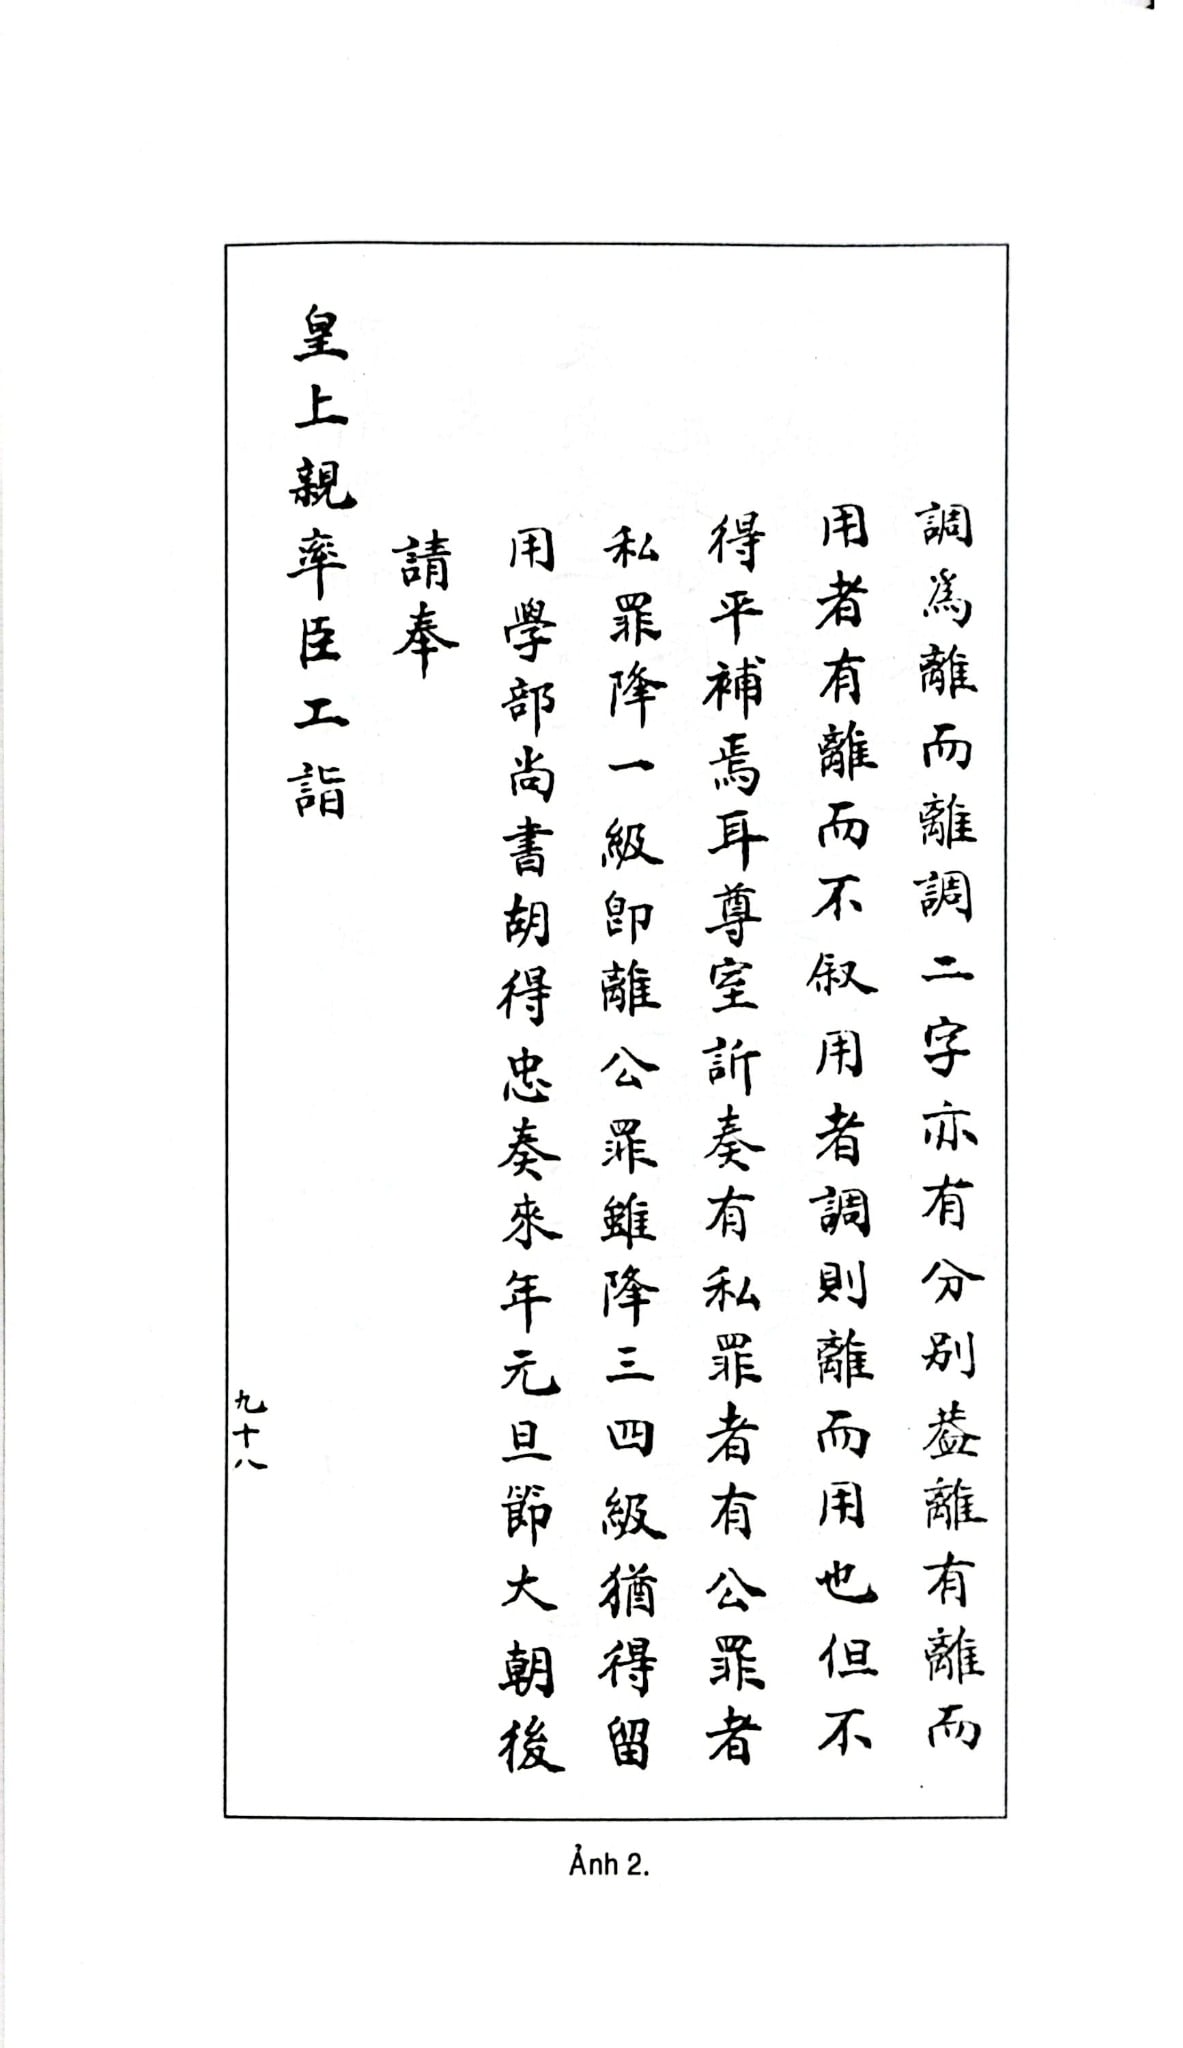 調爲離而離調二字亦有分别葢離有離而
用者有離而不叙用者調則離而用也但不
得平補焉耳尊室訢奏有私罪者有公罪者
私罪降一級卽離公罪雖降三四級猶得留
用學部尚書胡得忠奏來年元旦節大朝後
請奉
皇上親率臣工詣
九十八
Ảnh 2.